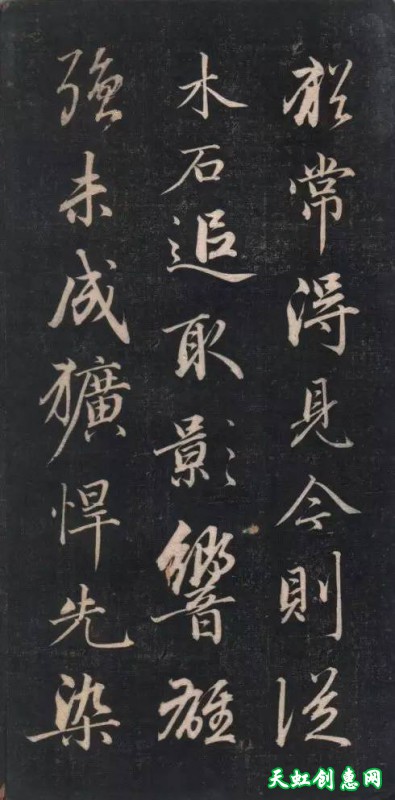 猶常得見今則從
木石追取影響雄
強未成獷悍先染
天虹创惠网